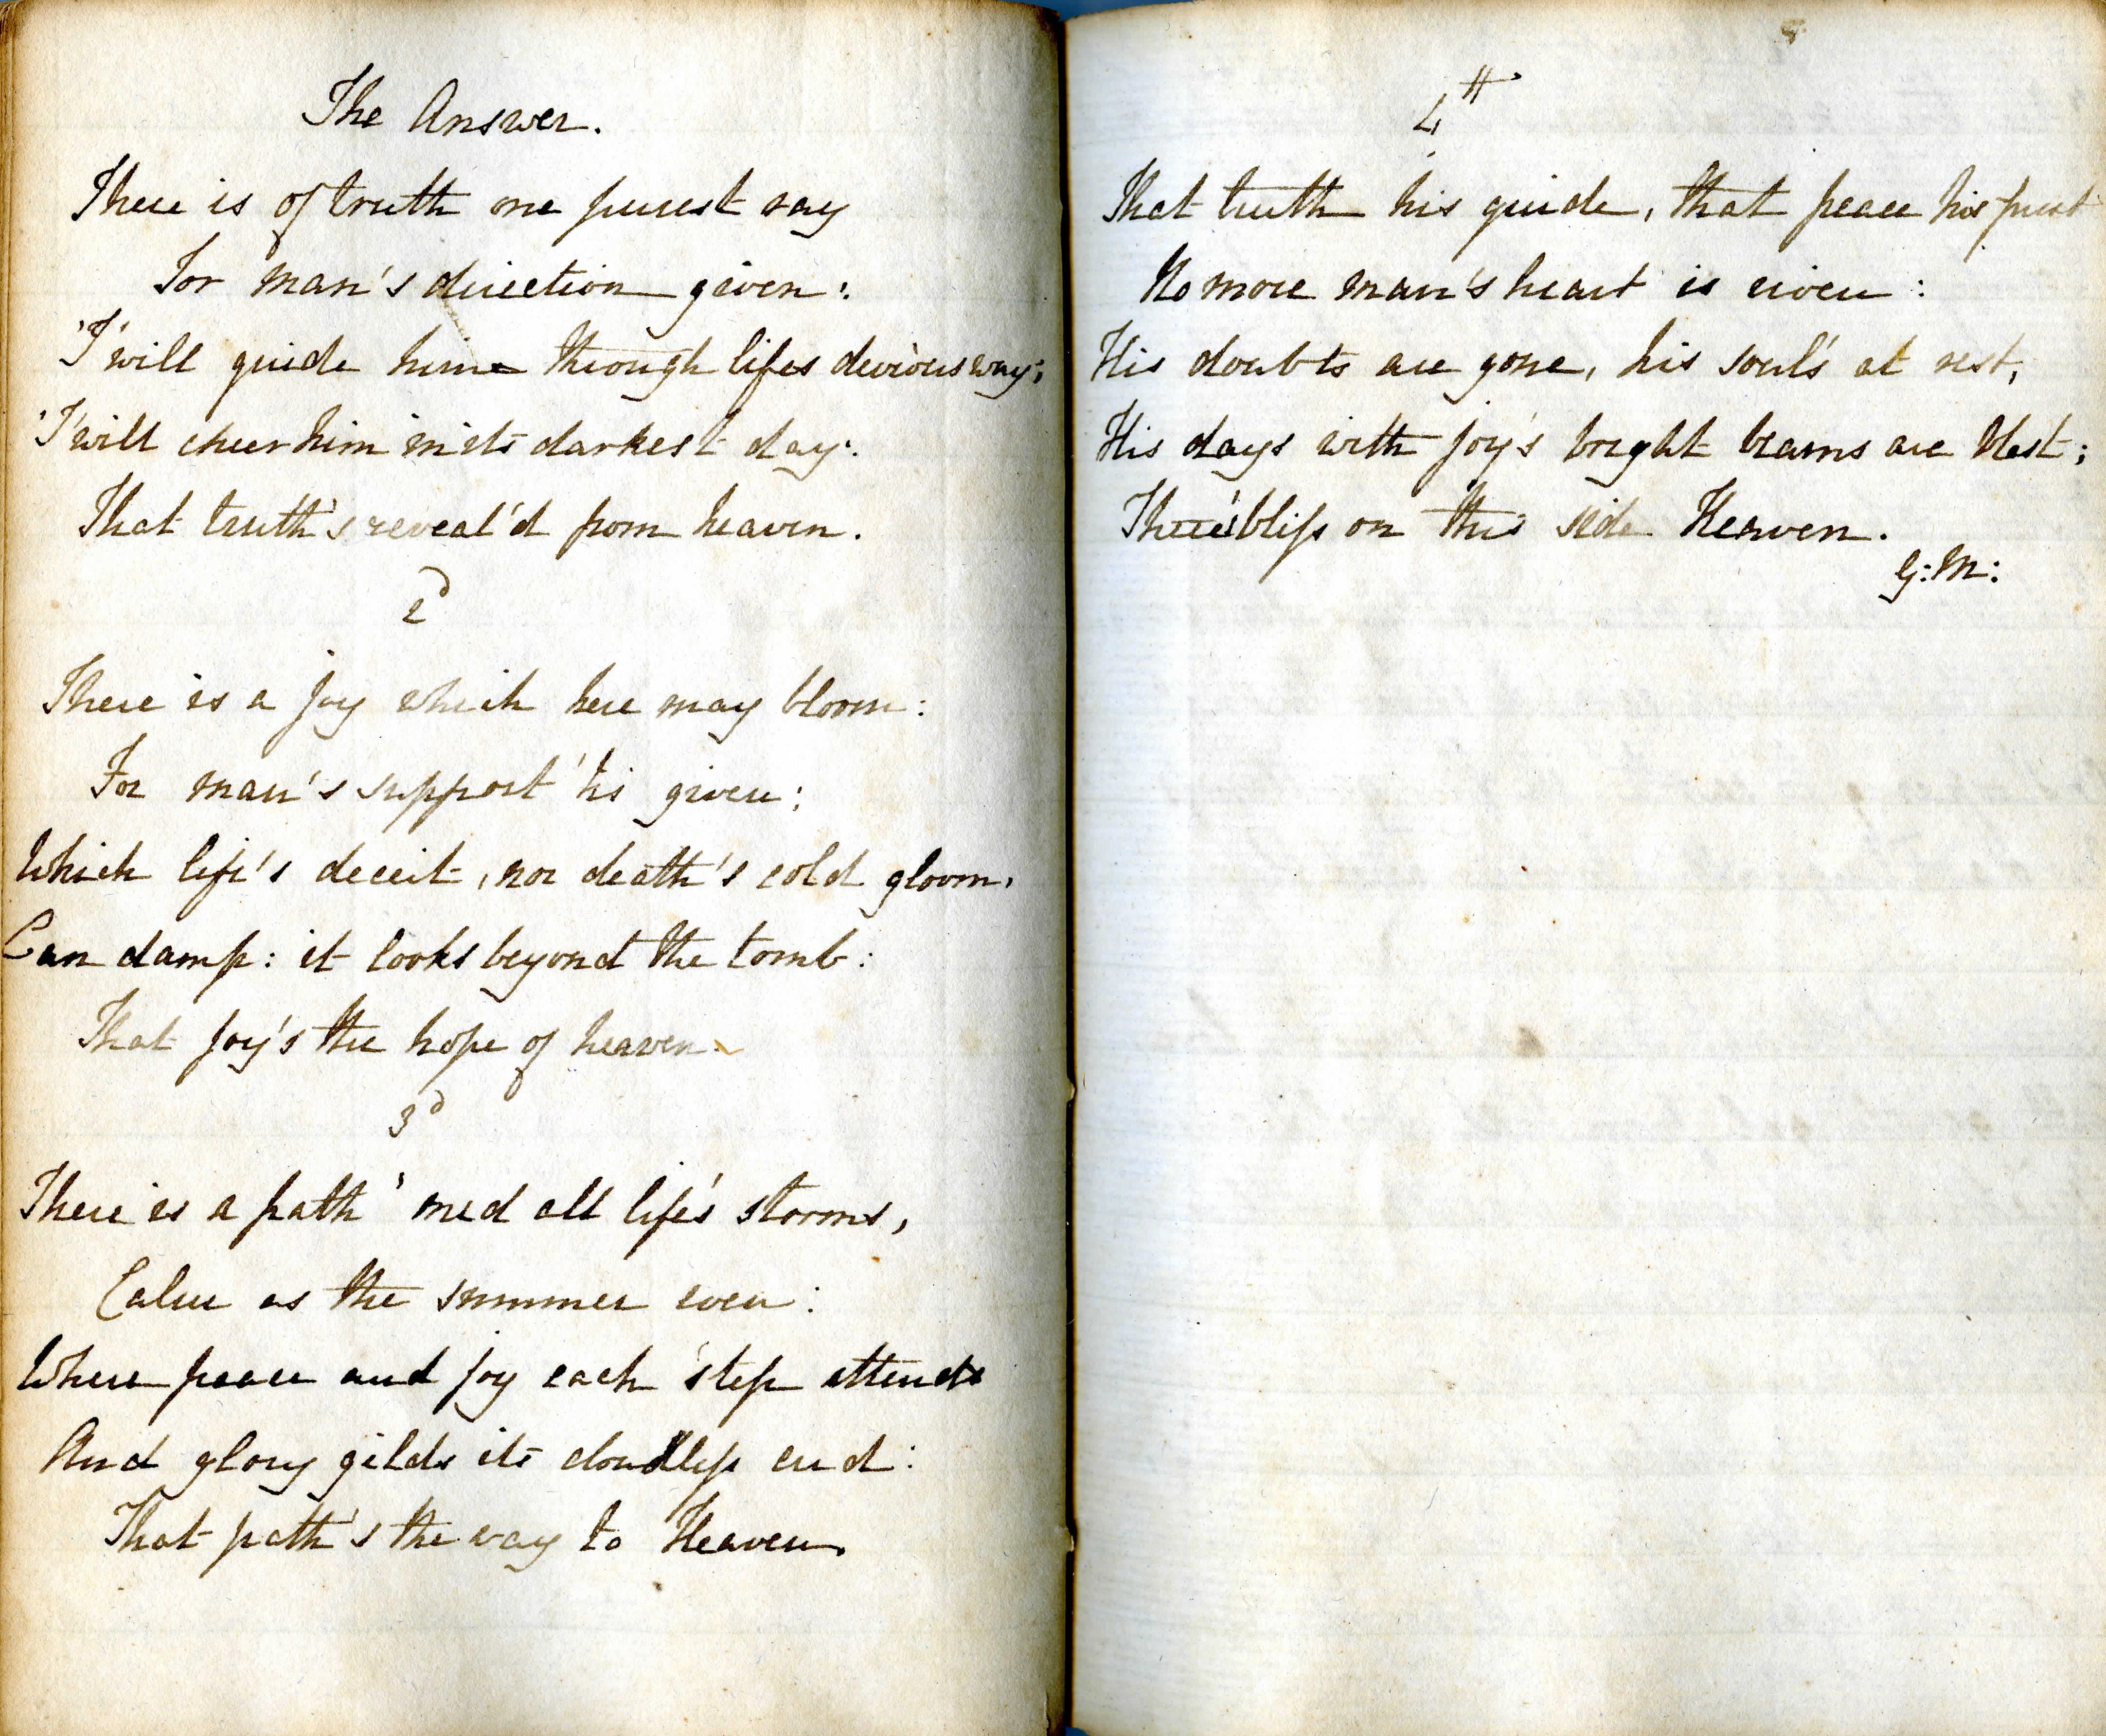 The Answer.
There is of truth one purest ray
For man's direction given:
'T'will guide him through lifes devious way;
'T'will cheer him in its darkest day:
That truth's reveal'd from heaven.
2d
There is a joy which here may bloom:
For man's support 'tis given:
Which life's deceit, nor death's cold gloom,
Can damp: it looks beyond the tomb:
That joy's the hope of heaven.
3d
There is a path 'mid all life's storms,
Calm as the summer even:
Where peace and joy each step attends
And glory gilds its cloudless end:
That path's the way to Heaven.
4th
That truth his guide, that peace his
No more man's heart is riven:
His doubts are gone, his soul's at rest,
His days with joy's bright beams are blest;
There's bliss on this side Heaven.
G: M: